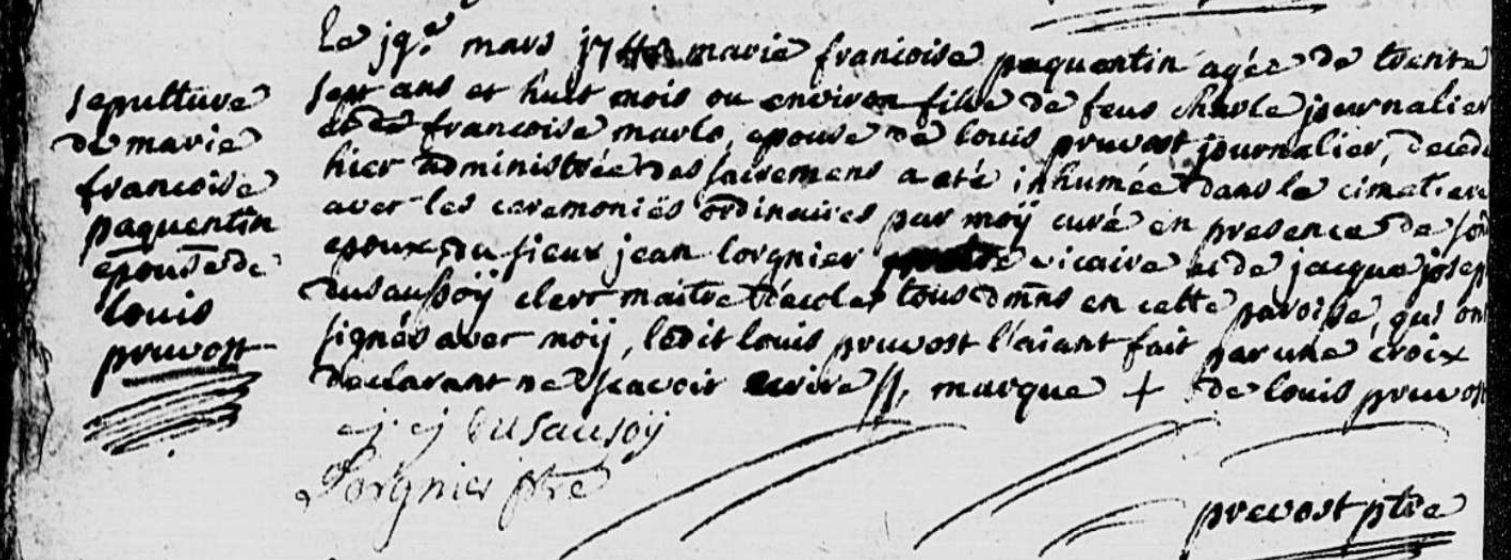 sepulture
de marie
francoise
paquentin
epouse de
louis
pruvost
Le j9e mars marie francoise paquentin agée de trente
sept ans et huit mois ou environ fille de feus charle journalier
et de francoise marlo, epouse de louis pruvost journalier, decedé
hier administrée des sacremens a eté inhumée dans le cimetiere
avec les ceremonies ordinaires par moÿ curé en presence de son
epoux, du sieur jean lorgnier vicaire et de jacque josep
dusaussoÿ clerc maitre d'ecole, tous dmns en cette paroisse, qui ont
signés avec moÿ, ledit louis pruvost l'aiant fait par une croix
declarant ne scavoir ecrire //, marque + de louis pruvost
j. j Dusausoÿ
Lorgnier ptre
prevost ptre